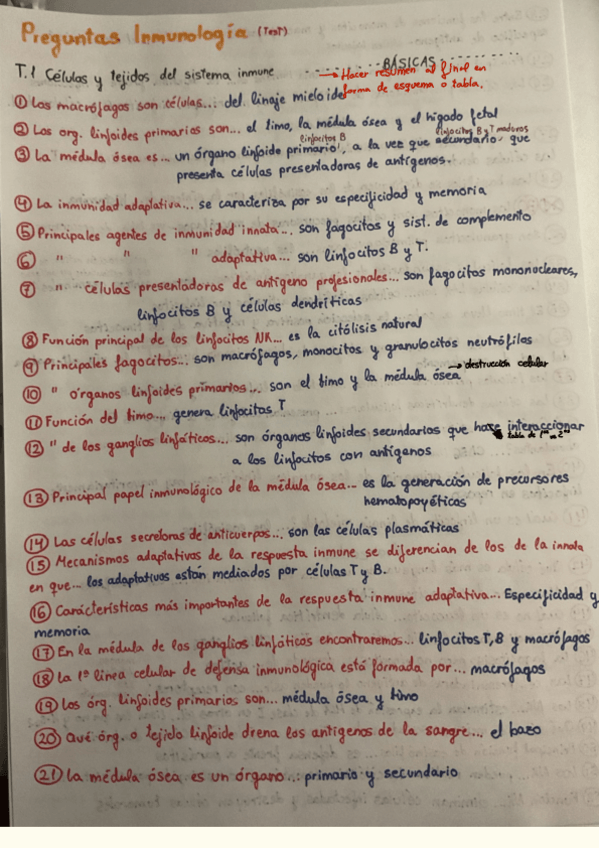 Preguntas Inmunología (Test)
T.1 Células y tejidos del sistema inmune ... BÁSICAS ...
→ Hacer resumen al final en
forma de esquema o tabla.
① Los macrófagos son células... del linaje mieloide
② Los org. linfoides primarios son... el timo, la médula ósea y el hígado fetal
linfocitos B linfocitos B y T maduros
③ La médula ósea es... un órgano linfoide primario, a la vez que secundario que
presenta células presentadoras de antígenos.
④ La inmunidad adaptativa... se caracteriza por su especificidad y memoria
⑤ Principales agentes de inmunidad innata... son fagocitos y sist. de complemento
⑥ " " " adaptativa... son linfocitos B y T.
⑦ " células presentadoras de antígeno profesionales... son fagocitos mononucleares,
linfocitos B y células dendríticas
⑧ Función principal de los linfocitos NK... es la citólisis natural
→ destrucción celular
⑨ Principales fagocitos... son macrófagos, monocitos y granulocitos neutrófilos
⑩ " órganos linfoides primarios... son el timo y la médula ósea
⑪ Función del timo... genera linfocitos T
⑫ " de los ganglios linfáticos... son órganos linfoides secundarios que hace interaccionar
tabla de 1º vs 2º
a los linfocitos con antígenos
⑬ Principal papel inmunológico de la médula ósea... es la generación de precursores
hematopoyéticos
⑭ Las células secretoras de anticuerpos... son las células plasmáticas
⑮ Mecanismos adaptativos de la respuesta inmune se diferencian de los de la innata
en que... los adaptativos están mediados por células T y B.
⑯ Características más importantes de la respuesta inmune adaptativa... Especificidad y
memoria
⑰ En la médula de los ganglios linfáticos encontraremos... linfocitos T, B y macrófagos
⑱ La 1ª línea celular de defensa inmunológica está formada por... macrófagos
⑲ Los órg. linfoides primarios son... médula ósea y timo
⑳ Qué órg. o tejido linfoide drena los antígenos de la sangre... el bazo
㉑ La médula ósea es un órgano... primario y secundario